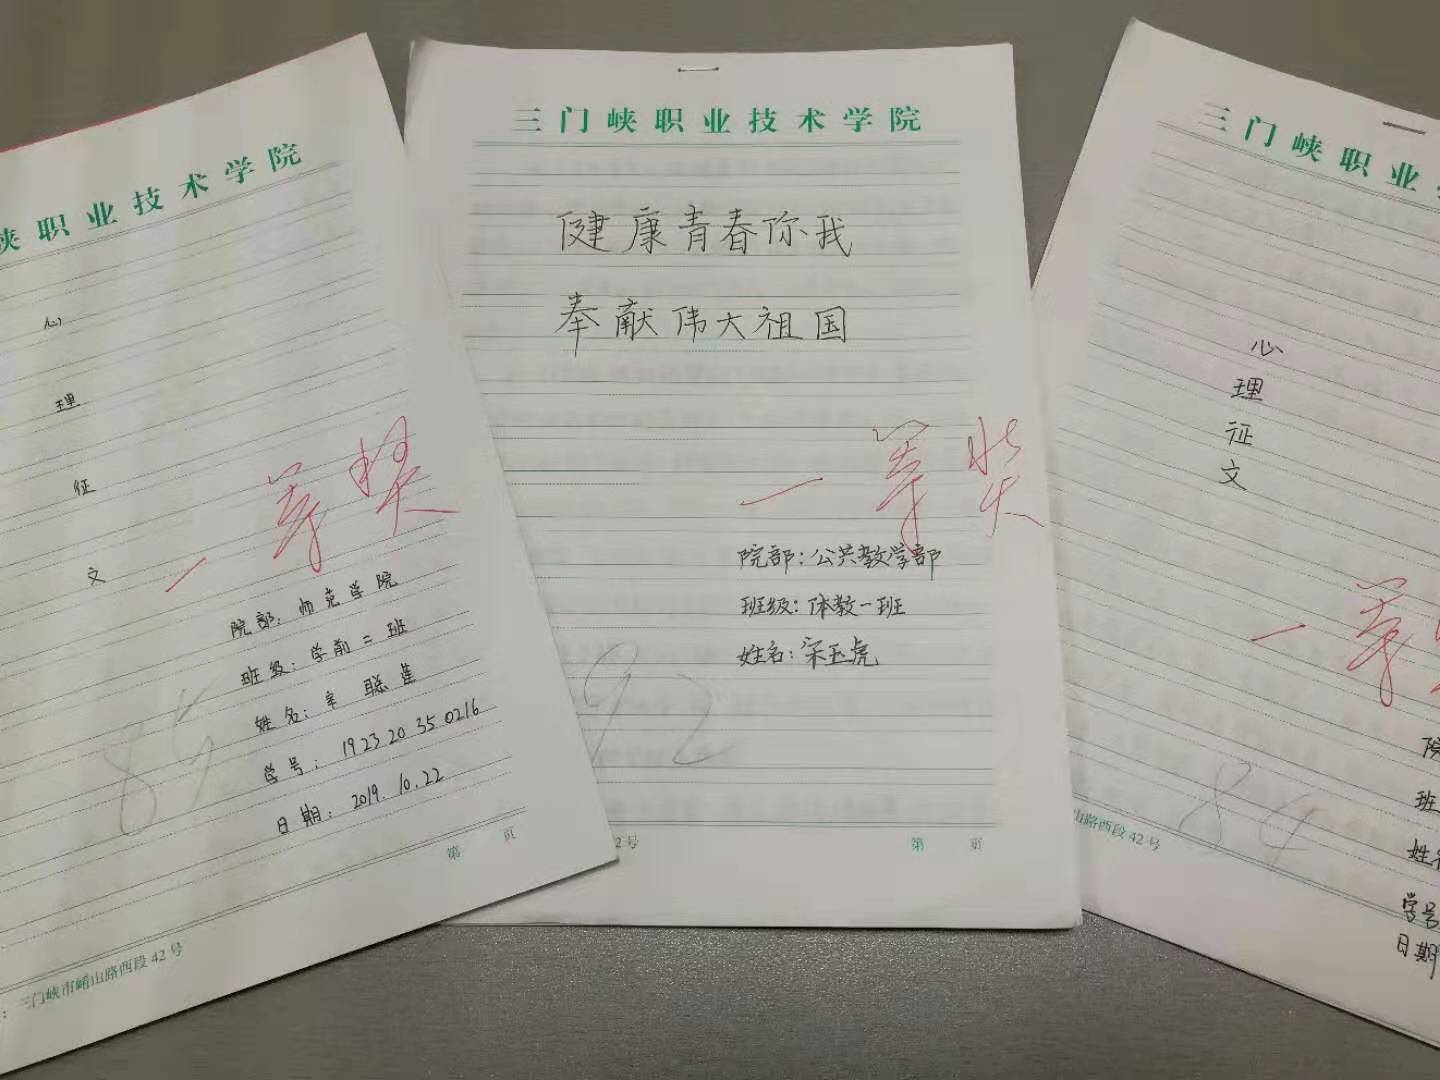 峡职业技术学院
心
理
征
文
一等奖
院部：师范学院
班级：学前二班
姓名：辛聪莲
学号：192320350216
日期：2019.10.22
85
第 页
：三门峡市崤山路西段42号
三门峡职业技术学院
健康青春你我
奉献伟大祖国
一等奖
院部：公共教学部
班级：体教一班
姓名：宋玉虎
92
2号
第 页
三门峡职业
心
理
征
文
一等
院
班
姓名
学号
日期
84
山路西段42号